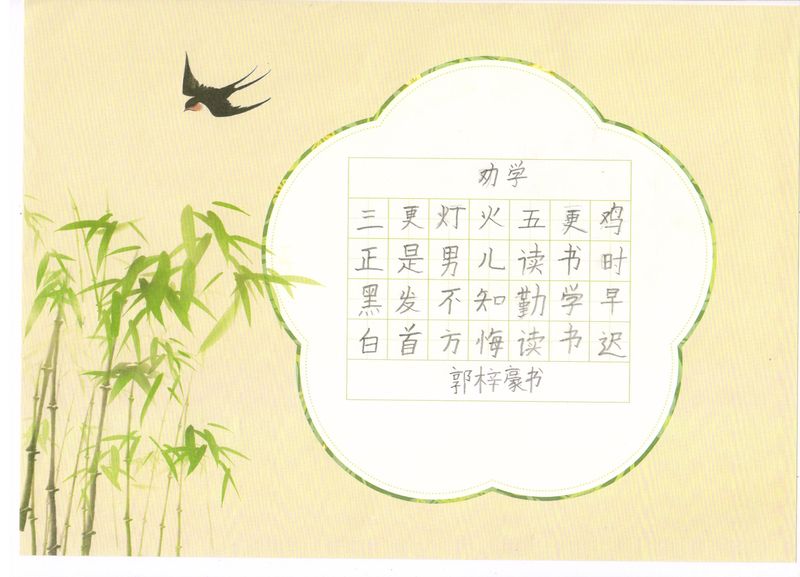 劝学
三更灯火五更鸡
正是男儿读书时
黑发不知勤学早
白首方悔读书迟
郭梓豪书